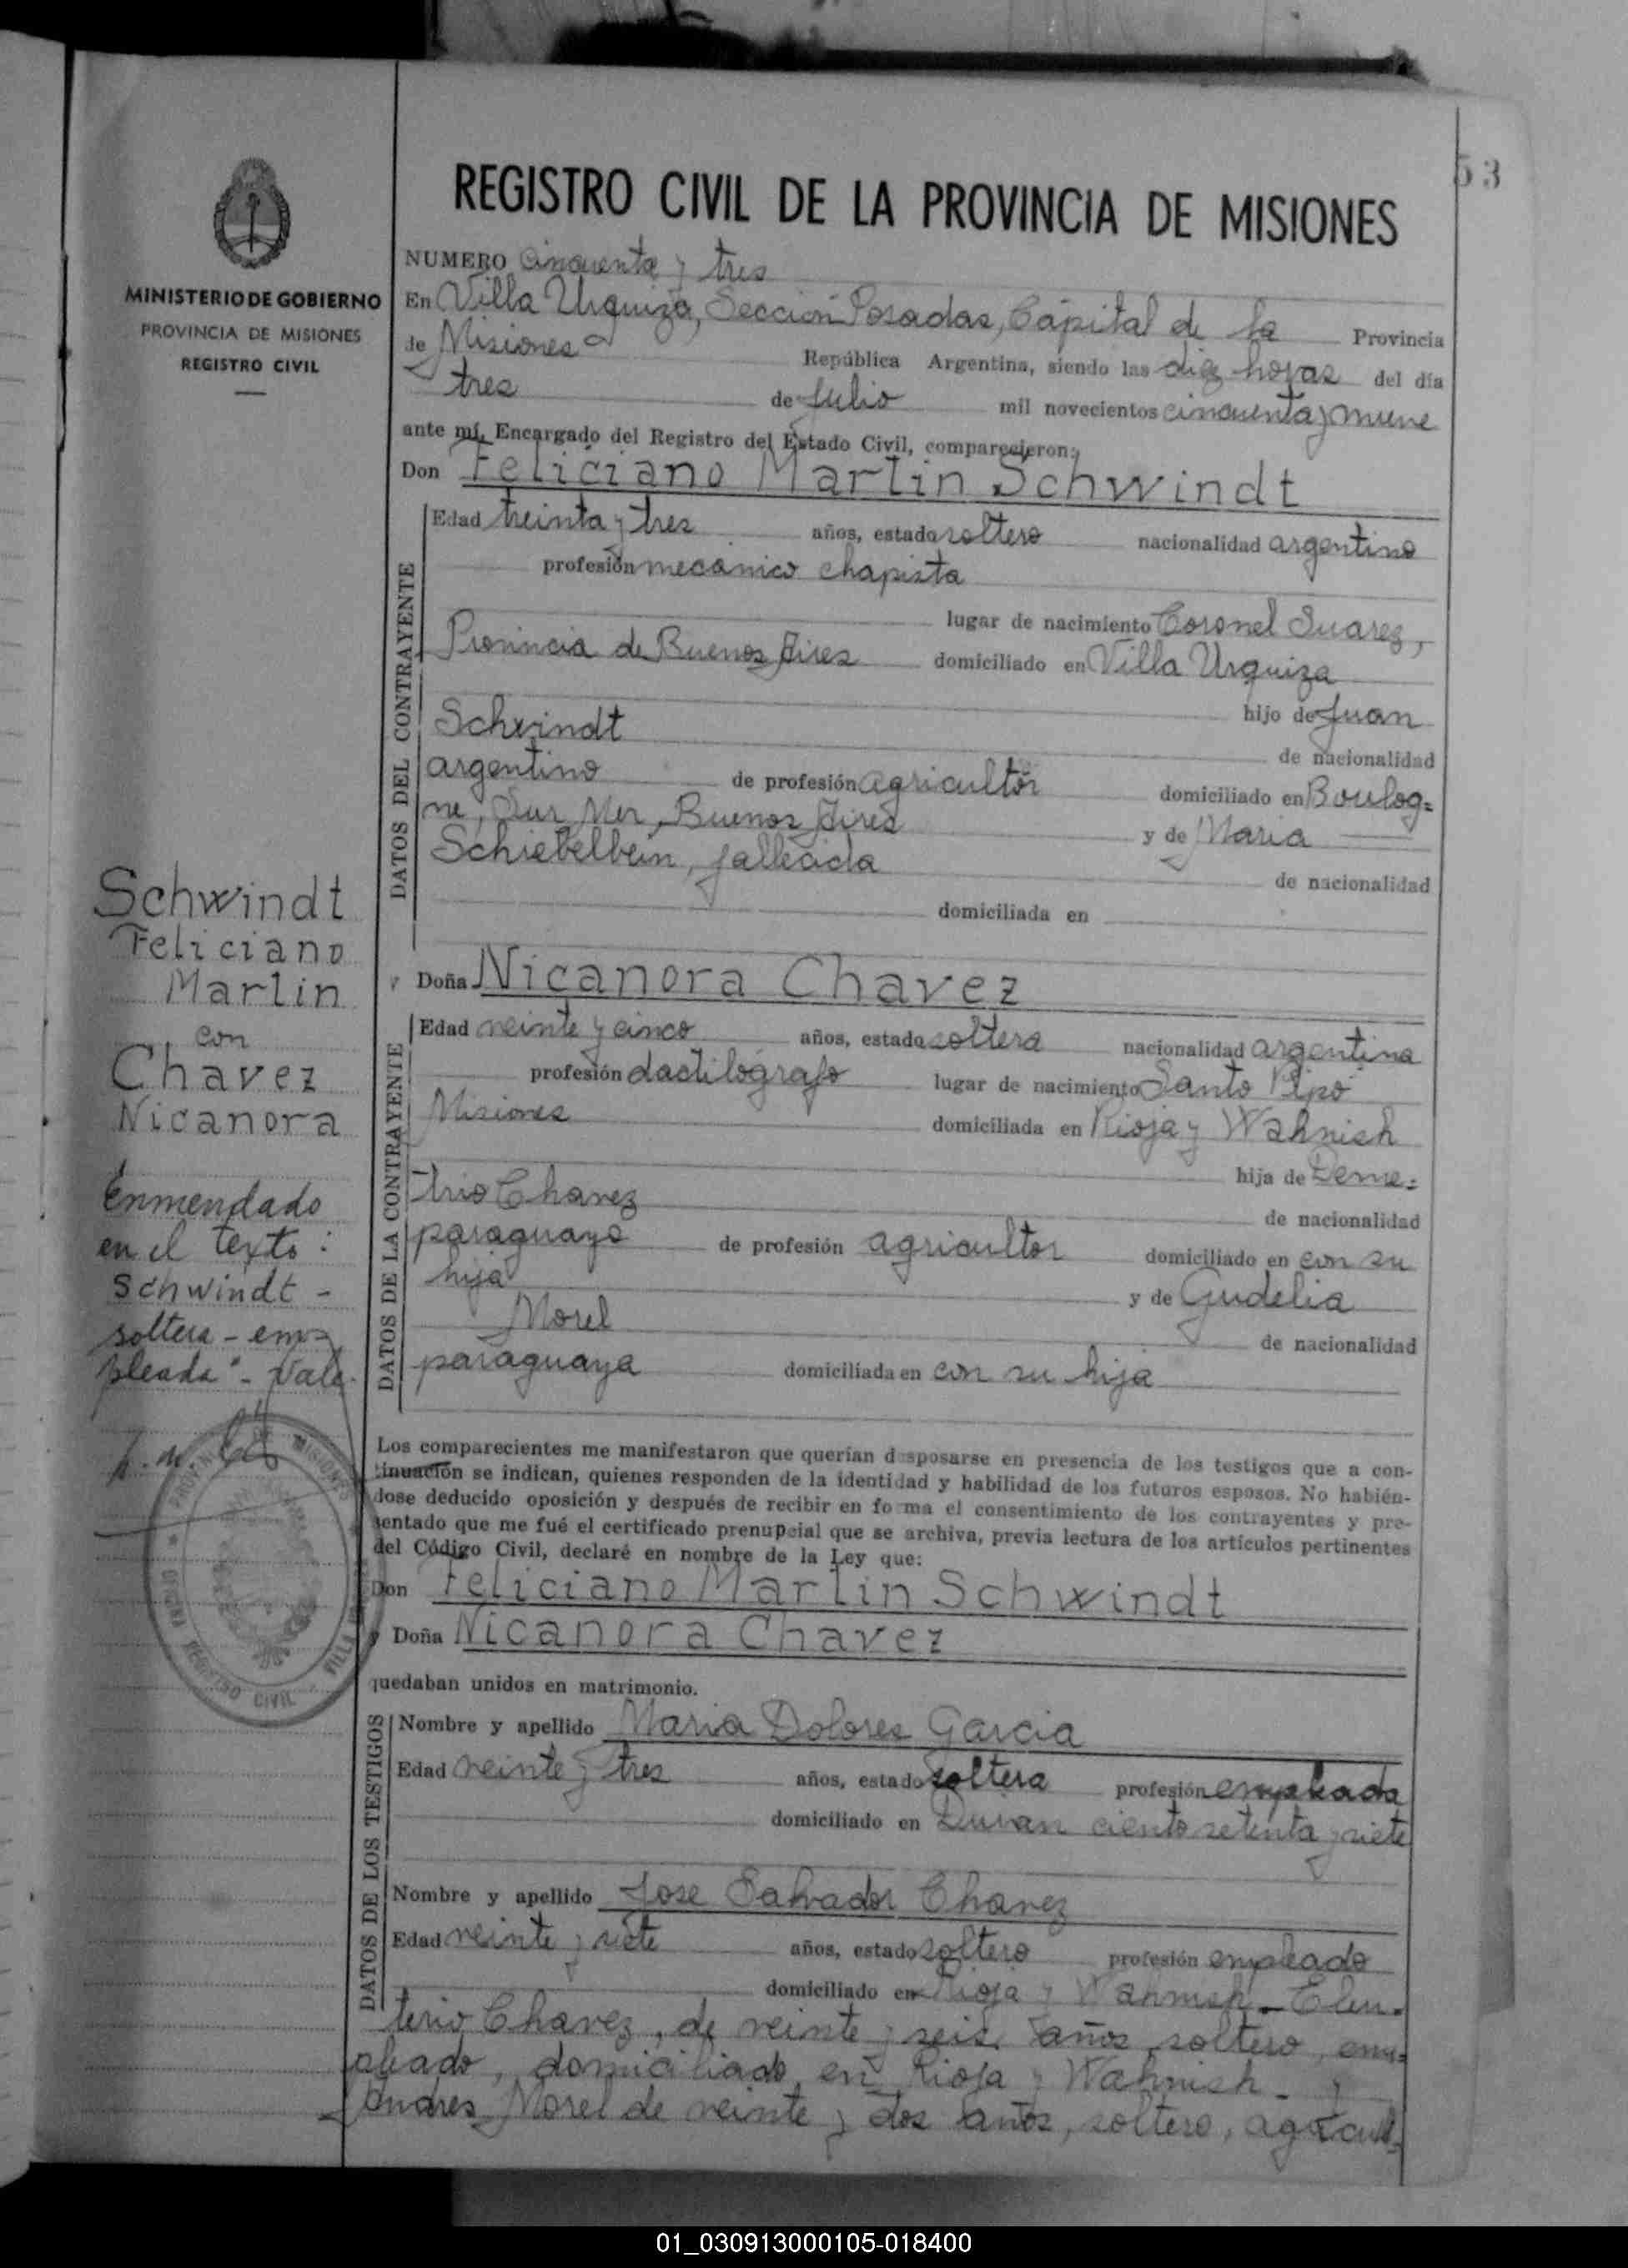 53
REGISTRO CIVIL DE LA PROVINCIA DE MISIONES
MINISTERIO DE GOBIERNO
PROVINCIA DE MISIONES
REGISTRO CIVIL
NUMERO Cincuenta y tres
En Villa Urquiza, Sección Posadas, Capital de la Provincia
de Misiones República Argentina, siendo las diez horas del día
tres de Julio mil novecientos cincuenta y nueve
ante mí, Encargado del Registro del Estado Civil, comparecieron:
Don Feliciano Martin Schwindt
DATOS DEL CONTRAYENTE
Edad treinta y tres años, estado soltero nacionalidad argentino
profesión mecánico chapista
lugar de nacimiento Coronel Suarez,
Provincia de Buenos Aires domiciliado en Villa Urquiza
hijo de Juan
Schwindt de nacionalidad
argentino de profesión agricultor domiciliado en Boulog=
ne, Sur Mer, Buenos Aires y de Maria
Schiebelbein, fallecida de nacionalidad
domiciliada en
Schwindt
Feliciano
Martin
con
Chavez
Nicanora
Enmendado
en el texto:
Schwindt -
soltera - em=
pleada" - Vale.
y Doña Nicanora Chavez
DATOS DE LA CONTRAYENTE
Edad veinte y cinco años, estado soltera nacionalidad argentina
profesión dactilógrafo lugar de nacimiento Santo Pipó
Misiones domiciliada en Rioja y Wahnish
hija de Deme=
trio Chavez de nacionalidad
paraguayo de profesión agricultor domiciliado en con su
hija y de Gudelia
Morel de nacionalidad
paraguaya domiciliada en con su hija
Los comparecientes me manifestaron que querían desposarse en presencia de los testigos que a con-
tinuación se indican, quienes responden de la identidad y habilidad de los futuros esposos. No habién-
dose deducido oposición y después de recibir en forma el consentimiento de los contrayentes y pre-
sentado que me fué el certificado prenupcial que se archiva, previa lectura de los artículos pertinentes
del Código Civil, declaré en nombre de la Ley que:
Don Feliciano Martin Schwindt
y Doña Nicanora Chavez
quedaban unidos en matrimonio.
PROVINCIA DE MISIONES
OFICINA REGISTRO CIVIL VILLA
DATOS DE LOS TESTIGOS
Nombre y apellido Maria Dolores Garcia
Edad veinte y tres años, estado soltera profesión empleada
domiciliado en ciento setenta y siete
Nombre y apellido Jose Salvador Chavez
Edad veinte y siete años, estado soltero profesión empleado
domiciliado en Rioja y Wahnish - Eleu=
terio Chavez, de veinte y seis años, soltero, em=
pleado, domiciliado en Rioja y Wahnish - y
Andres Morel de veinte y dos años, soltero, agricul=
01_030913000105-018400